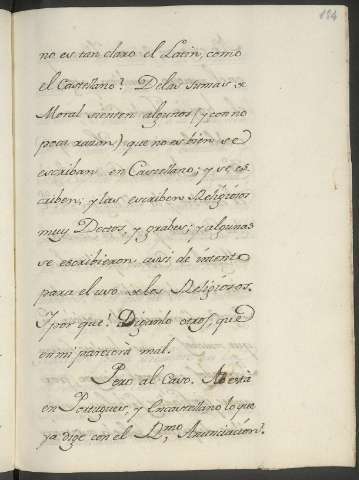 184
no es tan claro el Latin, como
el Castellano? De las Sumas de
Moral sienten algunos (y con no
poca razon) que no es bien se
escriban en Castellano; y se es-
criben; y las escriben Religiosos
muy Doctos, y grabes; y algunas
se escribieron casi de intento
para el uso de los Religiosos.
Y por que? Diganlo otros, que
en mi parecerà mal.
Pero al Caso. No està
en Portugues, y En castellano lo que
ya dige con el Ill.mo Anunciacion?